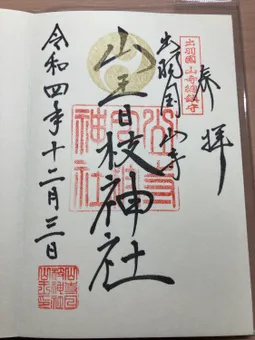 奉拝
出羽國山寺総鎮守
出羽国山寺
山王日枝神社
令和四年十二月三日